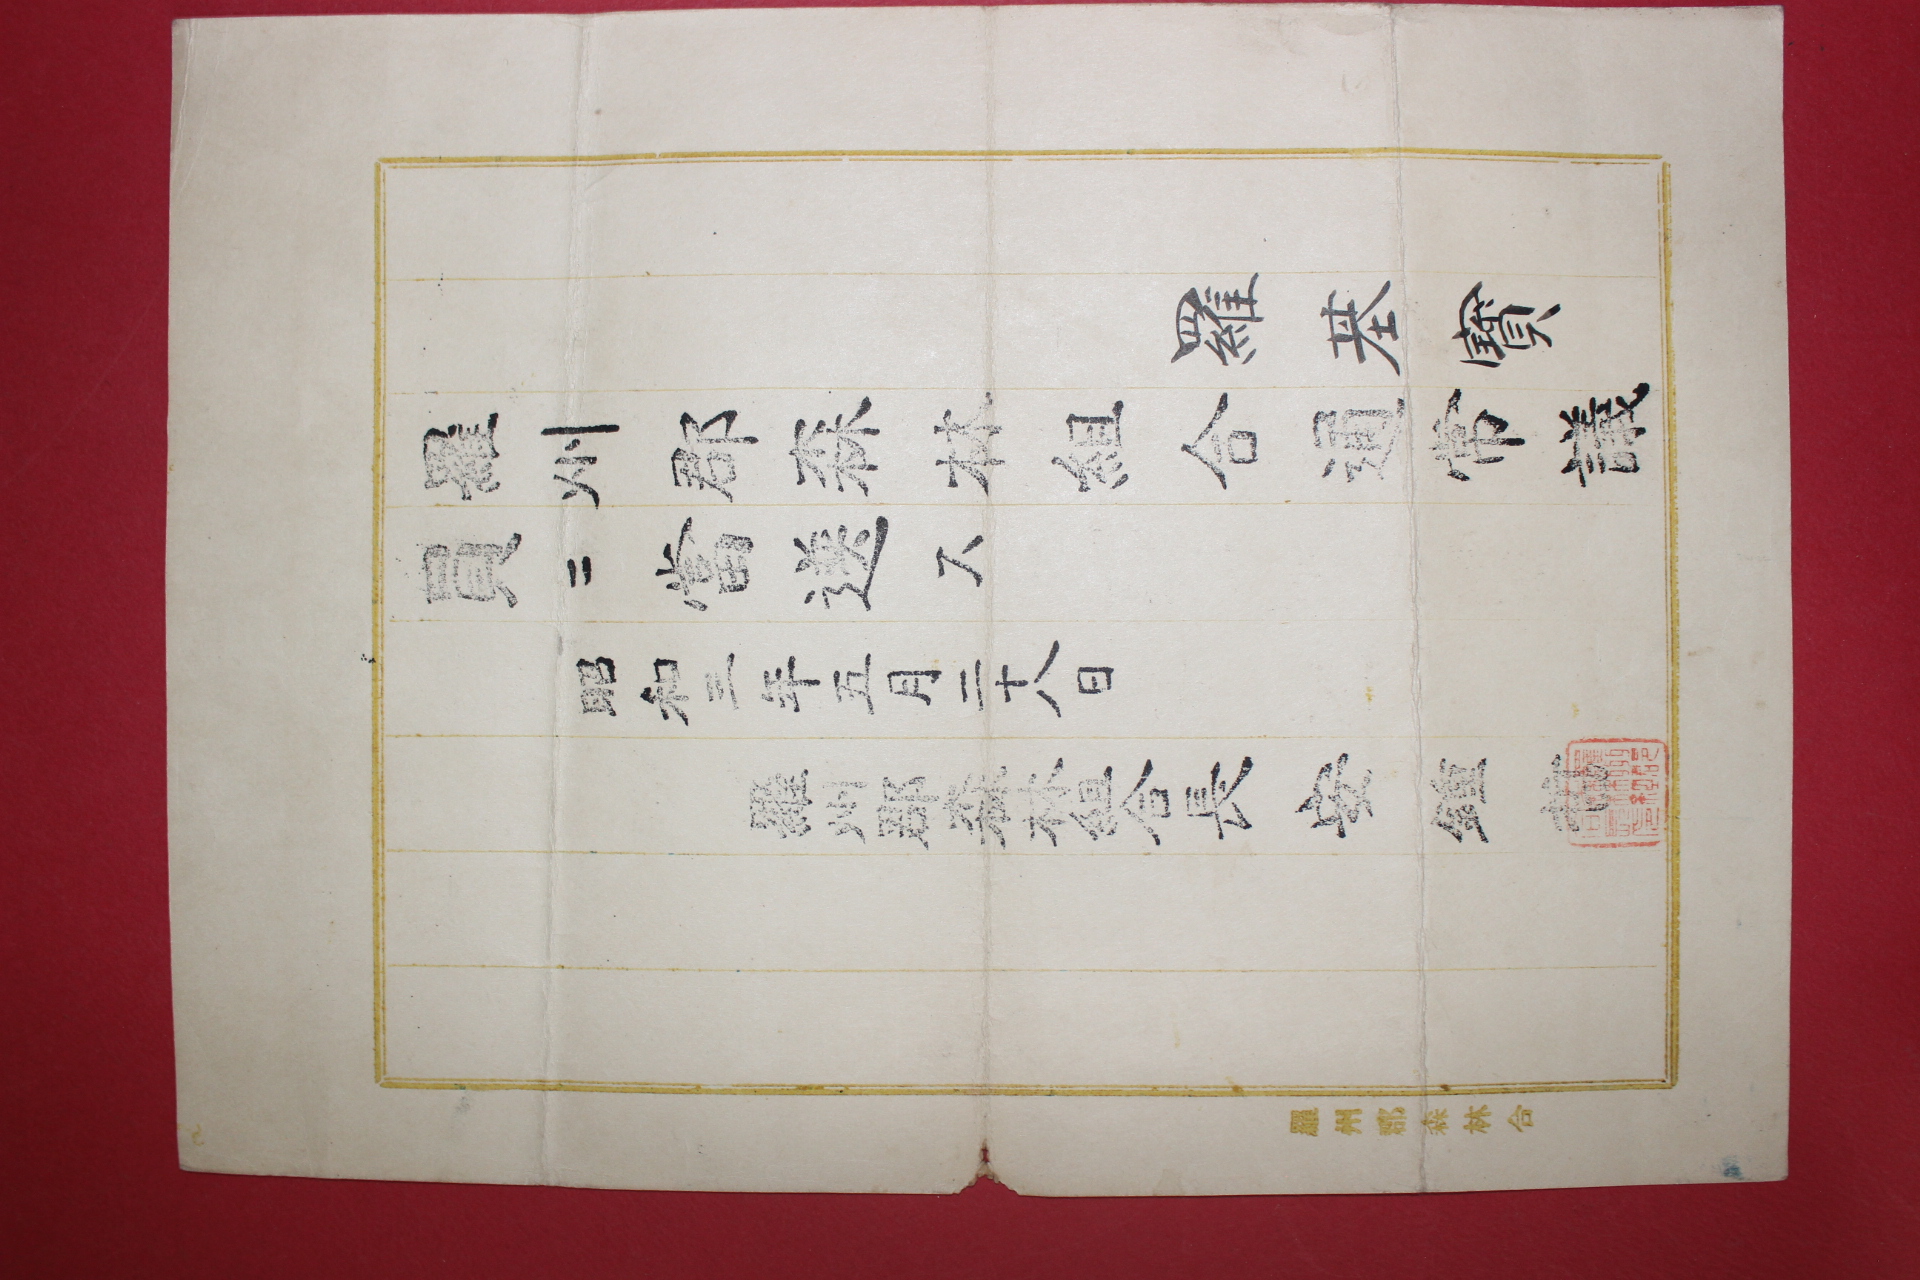 羅基寶
羅州郡森林組合通常議
員ニ當選ス
昭和三年五月二十八日
羅州郡森林組合長 安鍾
羅州郡森林合